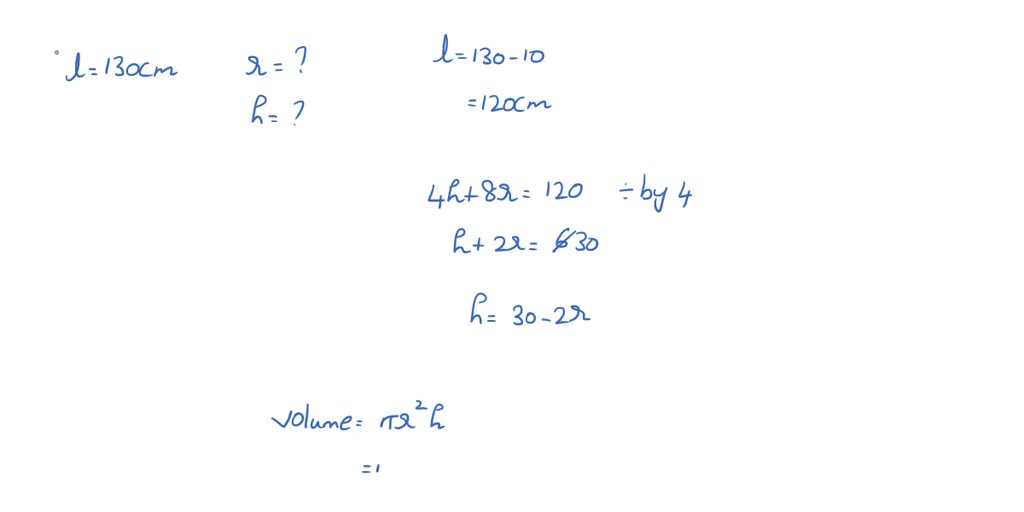 l=130cm
r=?
h=?
l=130-10
=120cm
4h+8r=120 ÷by 4
h+2r=30
h=30-2r
volume=πr²h
=